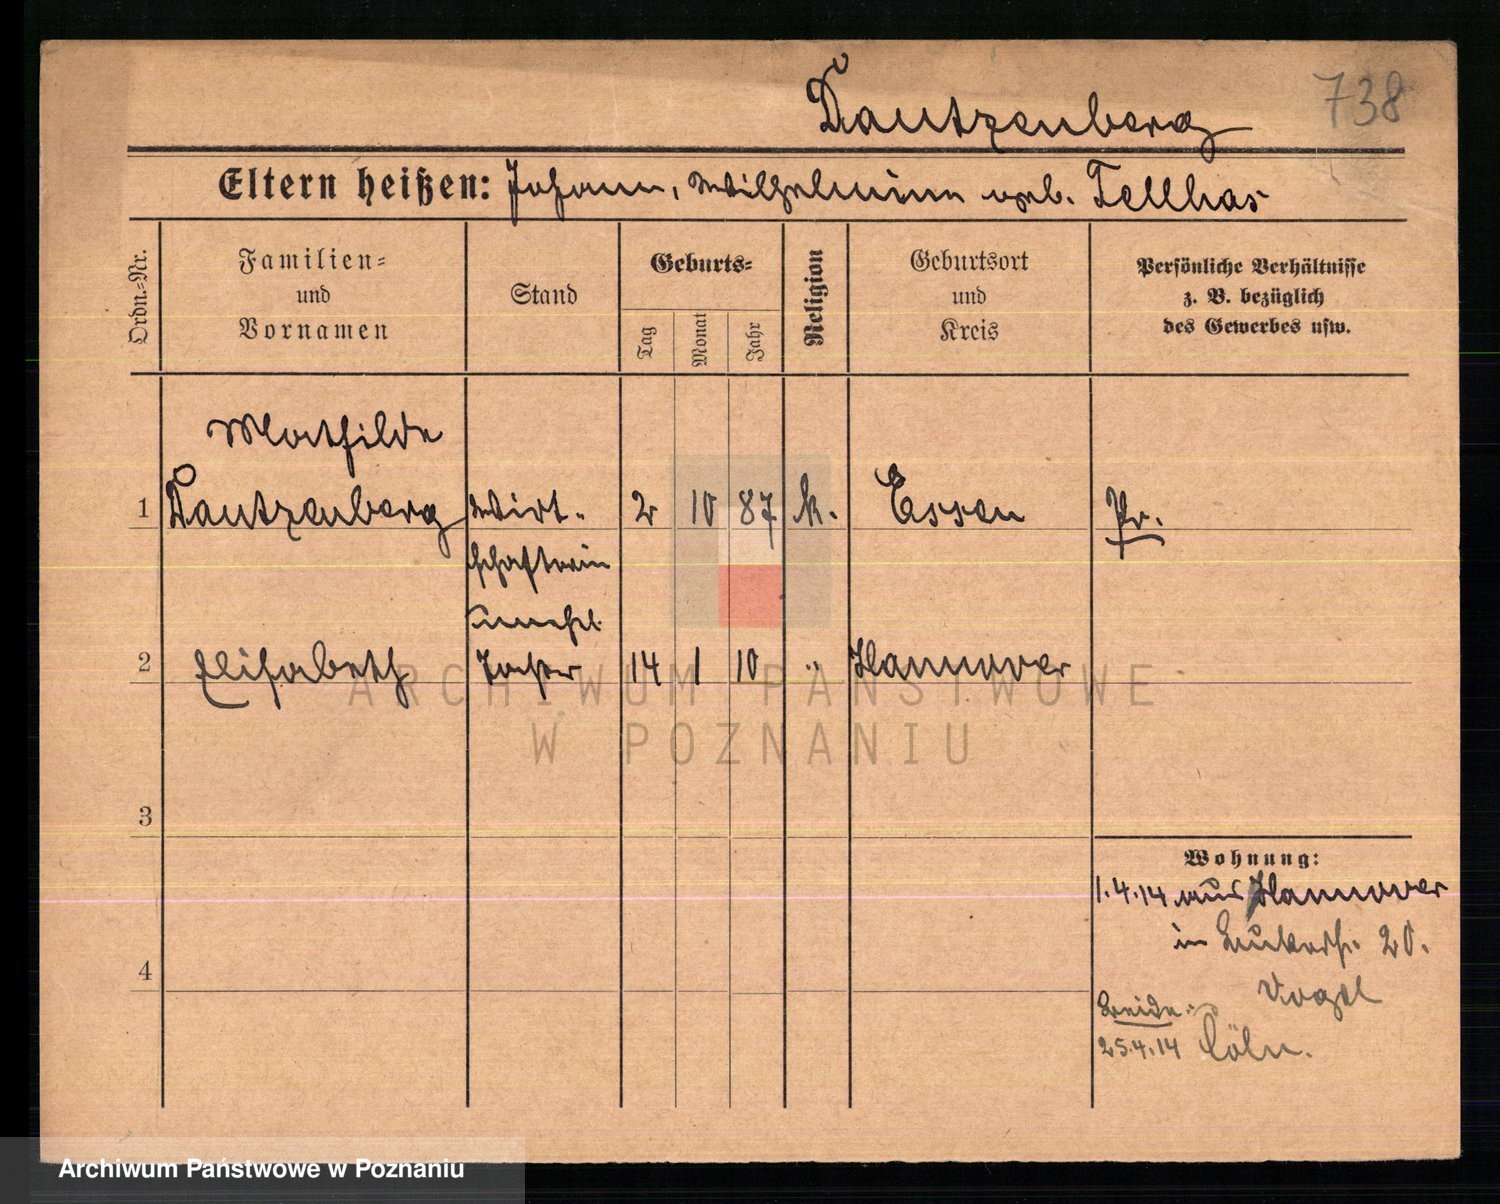 Dautzenberg 738
Eltern heißen: Johann, Wilhelmine geb. Tellhas
Ordn.-Nr.
Familien-
und
Vornamen
Stand
Geburts-
Tag
Monat
Jahr
Religion
Geburtsort
und
Kreis
Persönliche Verhältnisse
z. B. bezüglich
des Gewerbes usw.
Mathilde
1 Dautzenberg Wirt- 2 10 87 k. Essen Pr.
schafterin
unehel.
2 Elisabeth Tochter 14 1 10 " Hannover
3
Wohnung:
1.4.14 aus Hannover
in 20.
4
Vogel
Beide
25.4.14 Cöln.
ARCHIWUM PAŃSTWOWE
W POZNANIU
Archiwum Państwowe w Poznaniu